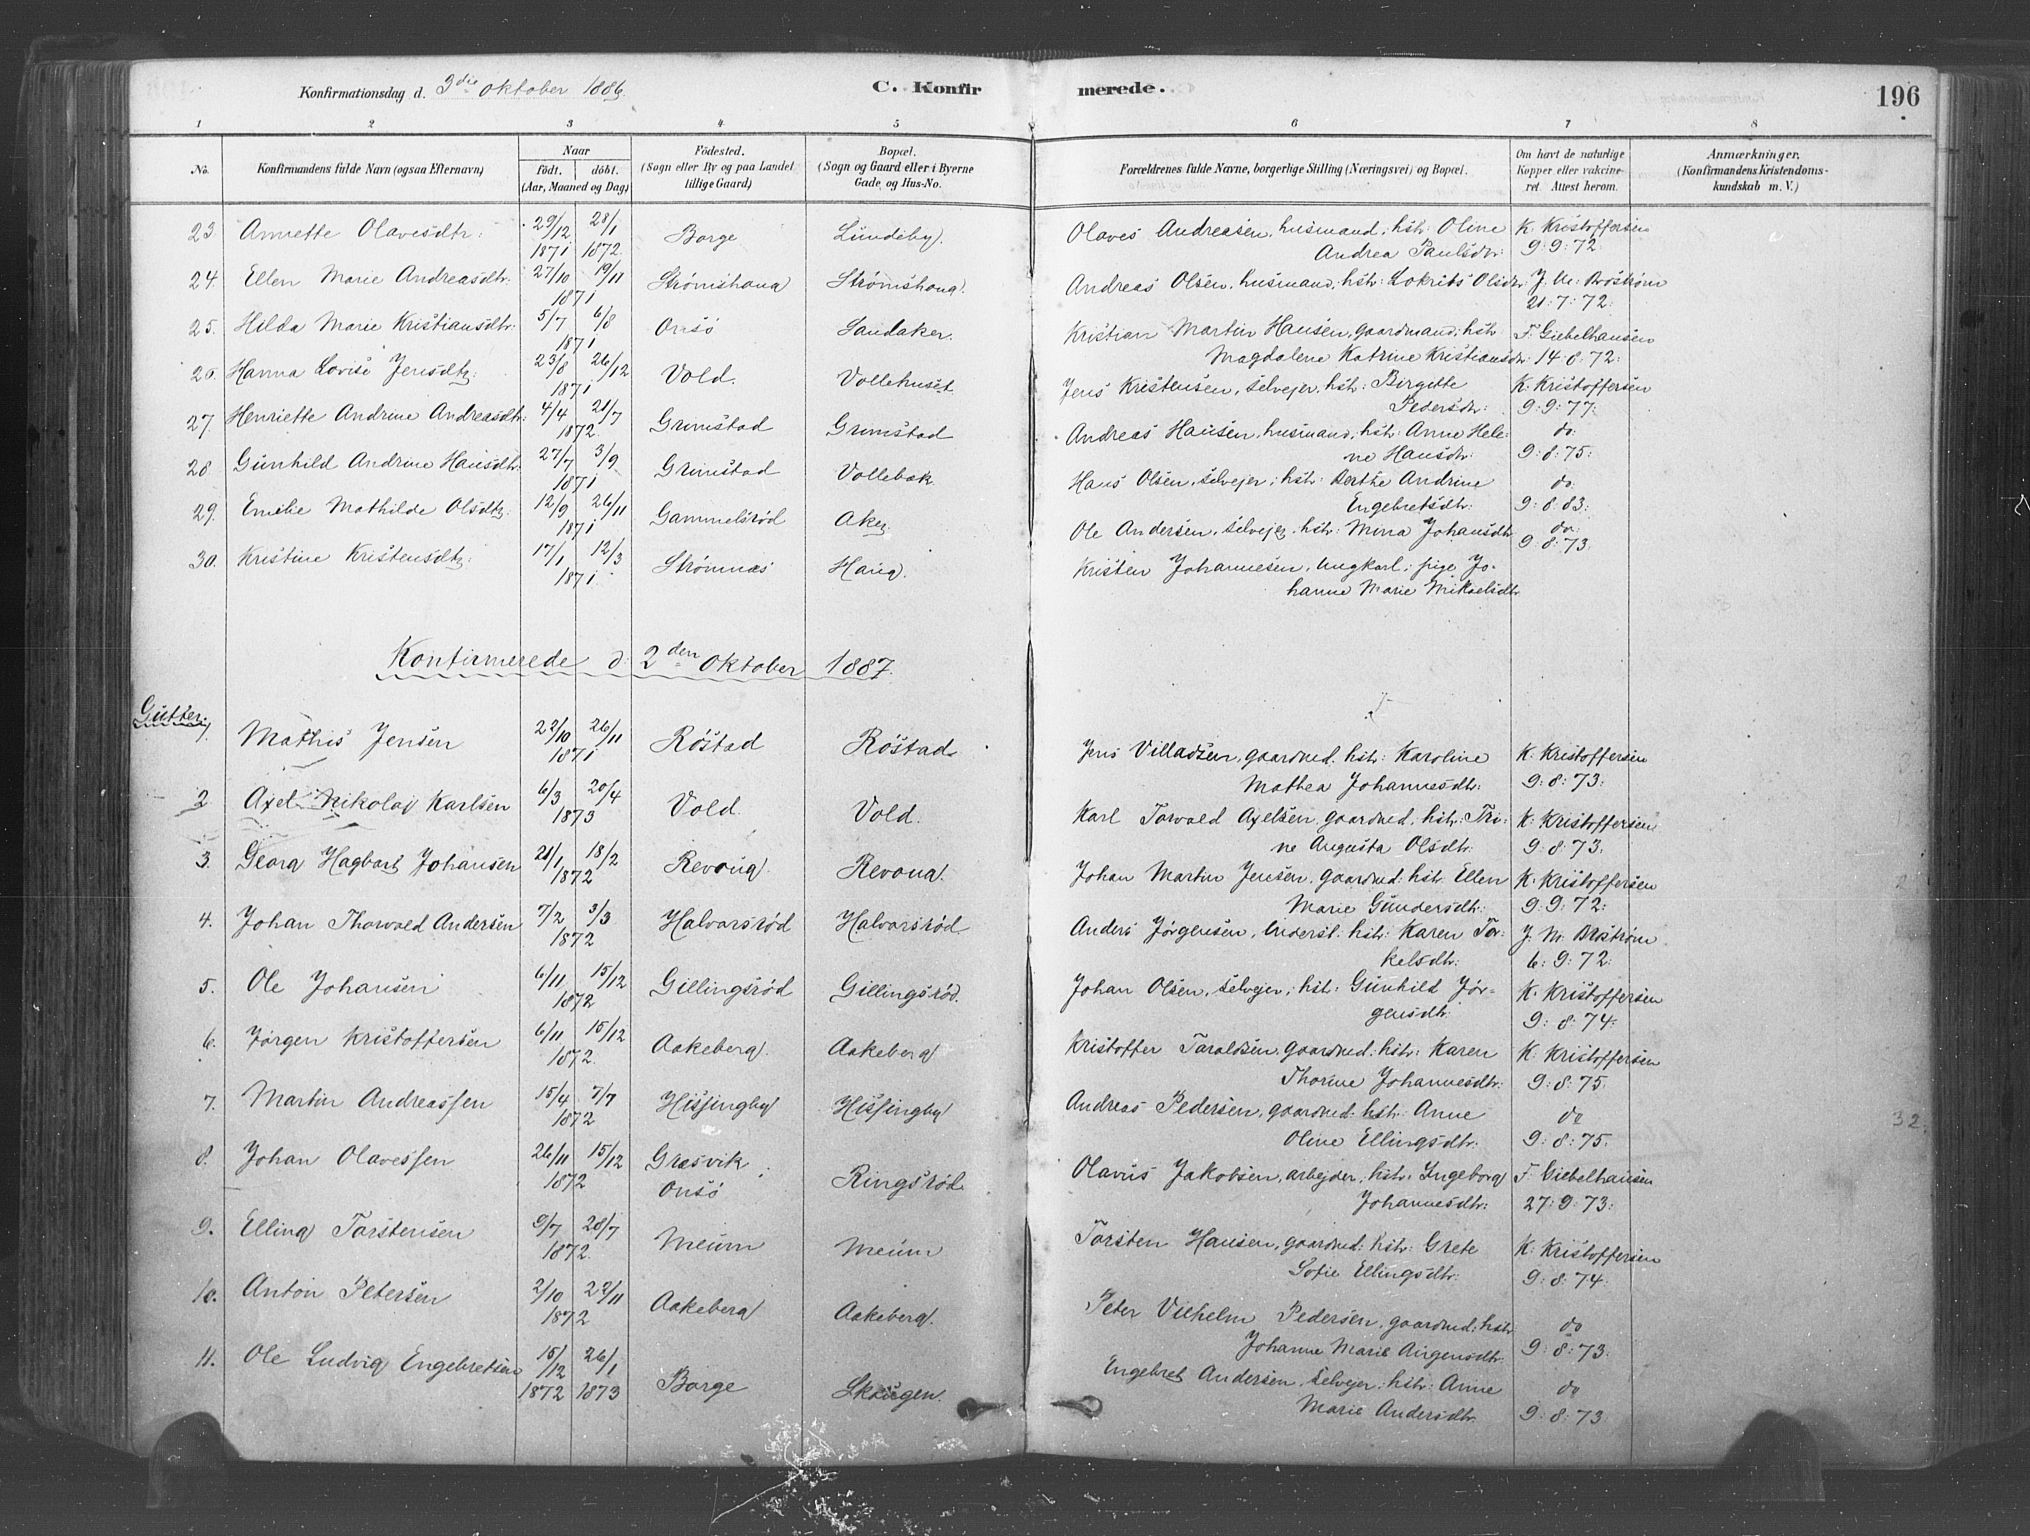 Konfirmationsdag d. 3die Oktober 1886. C. Konfirmerede. 196
1 2 3 4 5 6 7 8
No. Konfirmandens fulde Navn (ogsaa Efternavn) Naar födt. döbt. (Aar, Maaned og Dag) Födested. (Sogn eller By og paa Landet lillige Gaard) Bopæl. (Sogn og Gaard eller i Byerne Gade og Hus-No. Forældrenes fulde Navne, borgerlige Stilling (Næringsvei) og Bopæl. Om havt de naturlige Kopper eller vakcineret. Attest herom. Anmærkninger. (Konfirmandens Kristendomskundskab m. V.)
23. Annette Olavesdtr: 29/12 1871 28/1 1872. Borge Lundeby. Olaves Andreasen, husmand, hstr: Oline K. Kristoffersen
Andrea Paulsdtr: 9:9:72
24. Ellen Marie Andreasdtr: 27/10 19/11 1871 Strømshaug Strømshaug. Andreas Olsen, husmand, hstr: Olsdtr J. M. Broström
21:7:72:
25. Hilda Marie Kristiansdtr: 5/7 6/8 1871 Onsö Sandaker. Kristian Martin Hansen, gaardmand, hstr F. Giebelhausen
Magdalene Katrine Kristiansdtr 14:8:72:
26. Hanna Lovise Jensdtr: 23/8 26/12 1871 Vold. Vollehuset. Jens Kristensen, selvejer, hstr: Birgitte K. Kristoffersen
Pedersdtr: 9:9:77:
27. Henriette Andrine Andreasdtr: 4/4 21/7 1872. Grimstad Grimstad Andreas Hansen, husmand, hstr: Anne Hele- do.
ne Hansdtr: 9:8:75:
28. Gunhild Andrine Hansdtr: 27/7 3/9 1871 Grimstad Vollebæk Hans Olsen, selvejer, hstr: Berthe Andrine do
Engebretsdtr: 9:8:83:
29. Emilie Mathilde Olsdtr: 12/9 26/11 1871 Gammelsrød Aker. Ole Andersen, selvejer, hstr: Mina Johansdtr do:
9:8:73.
30. Kristine Kristensdtr: 17/1 12/3 1871. Strømnæs Haug. Kristen Johannesen, ungkarl; pige Jo-
hanne Marie Mikaelsdtr
Konfirmerede d. 2den Oktober 1887.
Gutter:
1. Mathis Jensen 22/10 26/11 1871 Röstad Röstad. Jens Villadsen, gaardmd. hstr: Karoline K. Kristoffersen
Mathea Johannesdtr: 9:8:73:
2. Axel Nikolaj Karlsen 6/3 20/4 1873 Vold. Vold. Karl Torvald Axelsen, gaardmd. hstr: Tri- K. Kristoffersen
ne Augusta Olsdtr: 9:8:73.
3. Georg Hagbart Johansen 21/1 18/2 1872 Revoug. Revoug. Johan Martin Jensen, gaardmd: hstr. Ellen K. Kristoffersen
Marie Gundersdtr: 9:9:72:
4. Johan Thorvald Andersen 7/2 3/3 1872 Halvorsrød Halvorsrød Anders Jörgensen, inderst. hstr: Karen Tor- J. M. Broström
kelsdtr: 6:9:72:
5. Ole Johansen 6/11 15/12 1872 Gillingsrød Gillingsrød. Johan Olsen, selvejer, hstr: Gunhild Jör- K. Kristoffersen
gensdtr. 9:8:74:
6. Jörgen Kristoffersen 6/11 15/12 1872. Aakeberg. Aakeberg Kristoffer Taraldsen, gaardmd: hstr: Karen K. Kristoffersen
Thorine Johannesdtr: 9:8:75.
7. Martin Andreassen 15/4 7/7 1872 Hissingby Hissingby Andreas Pedersen, gaardmd: hstr: Anne do
Oline Ellingsdtr: 9:8:75: 32.
8. Johan Olavessen 26/11 15/12 1872 Græsvik, Onsö Ringsrød Olavus Jakobsen, arbejder, hstr: Ingeborg F. Giebelhausen
Johannesdtr: 27:9:73:
9. Elling Torstensen 9/7 28/7 1872. Meum Meum Torsten Hansen, gaardmd: hstr: Grete K. Kristoffersen
Sofie Ellingsdtr: 9:8:74:
10. Anton Petersen 2/10 22/11 1872 Aakeberg Aakeberg. Peter Vilhelm Pedersen, gaardmd: hstr do
Johanne Marie 9:8:73.
11. Ole Ludvig Engebretsen 15/12 1872 26/1 1873 Borge Skaugen. Engebret Andersen, selvejer, hstr: Anne do
Marie Andersdtr. 9:8:73